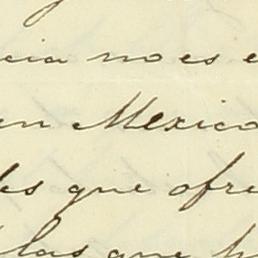 cia no es e
en Mexico
les que ofre
las que h